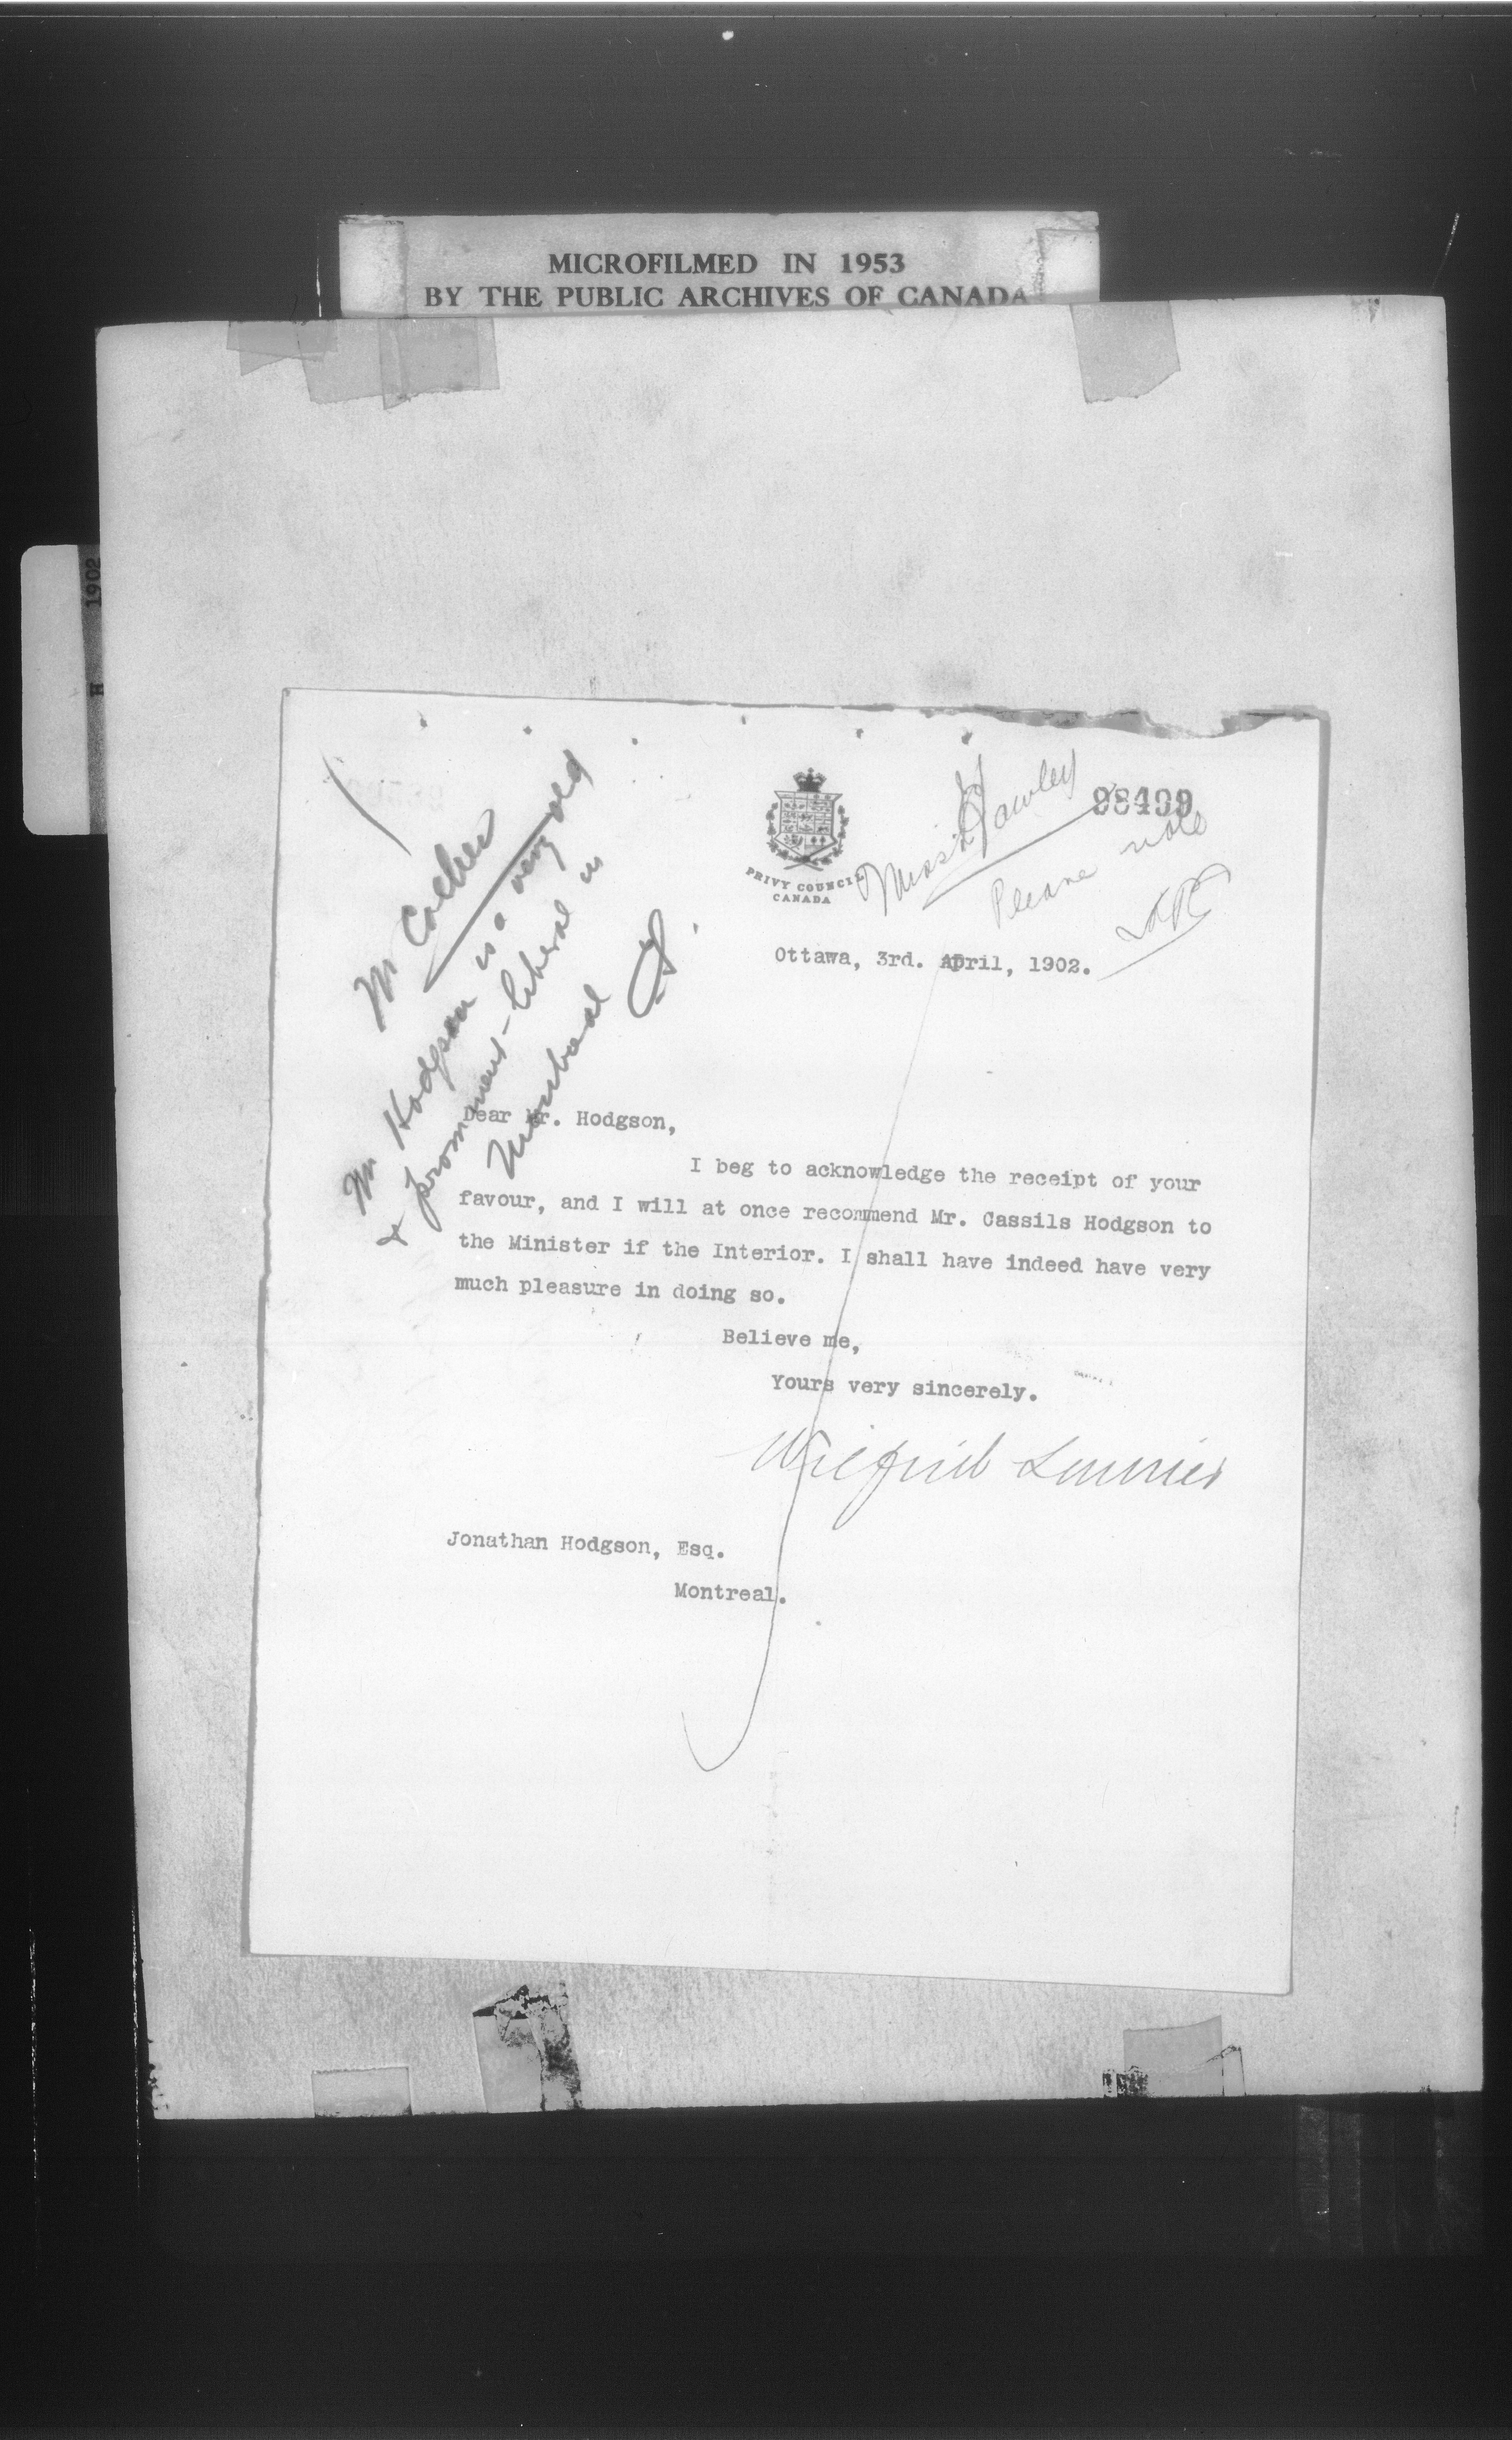 MICROFILMED IN 1953
BY THE PUBLIC ARCHIVES OF CANADA
1902
H
98409
Miss Hawley
Please note
PRIVY COUNCIL
CANADA
Mr
Mr Hodgson is a very old
& prominent Liberal in
Montreal
Ottawa, 3rd. April, 1902.
Dear Mr. Hodgson,
I beg to acknowledge the receipt of your
favour, and I will at once recommend Mr. Cassils Hodgson to
the Minister if the Interior. I shall have indeed have very
much pleasure in doing so.
Believe me,
Yours very sincerely.
Wilfrid Laurier
Jonathan Hodgson, Esq.
Montreal.